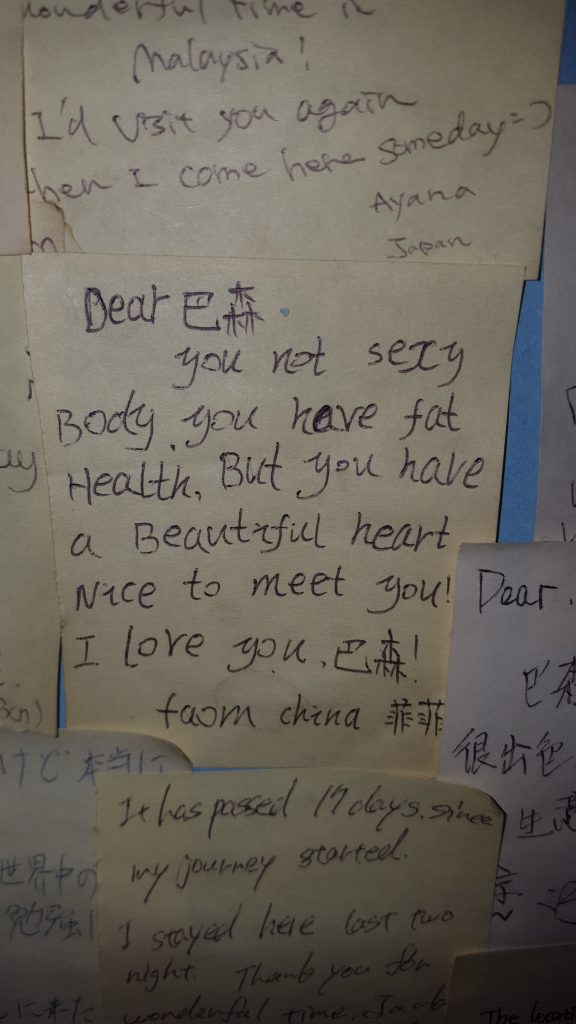 wonderful time in
Malaysia!
I'd visit you again
hen I come here someday=)
Ayana
Japan
Dear 巴森.
you not sexy
Body you have fat
Health, But you have
a Beautiful heart
Nice to meet you!
I love you, 巴森!
faom china 菲菲
ay
けど本当に
世界中の
勉強し
に来た
It has passed 17 days since
my journey started.
I stayed here last two
night. Thank you for
wonderful time, Jack
Dear
巴森
很出色
生意
The locati